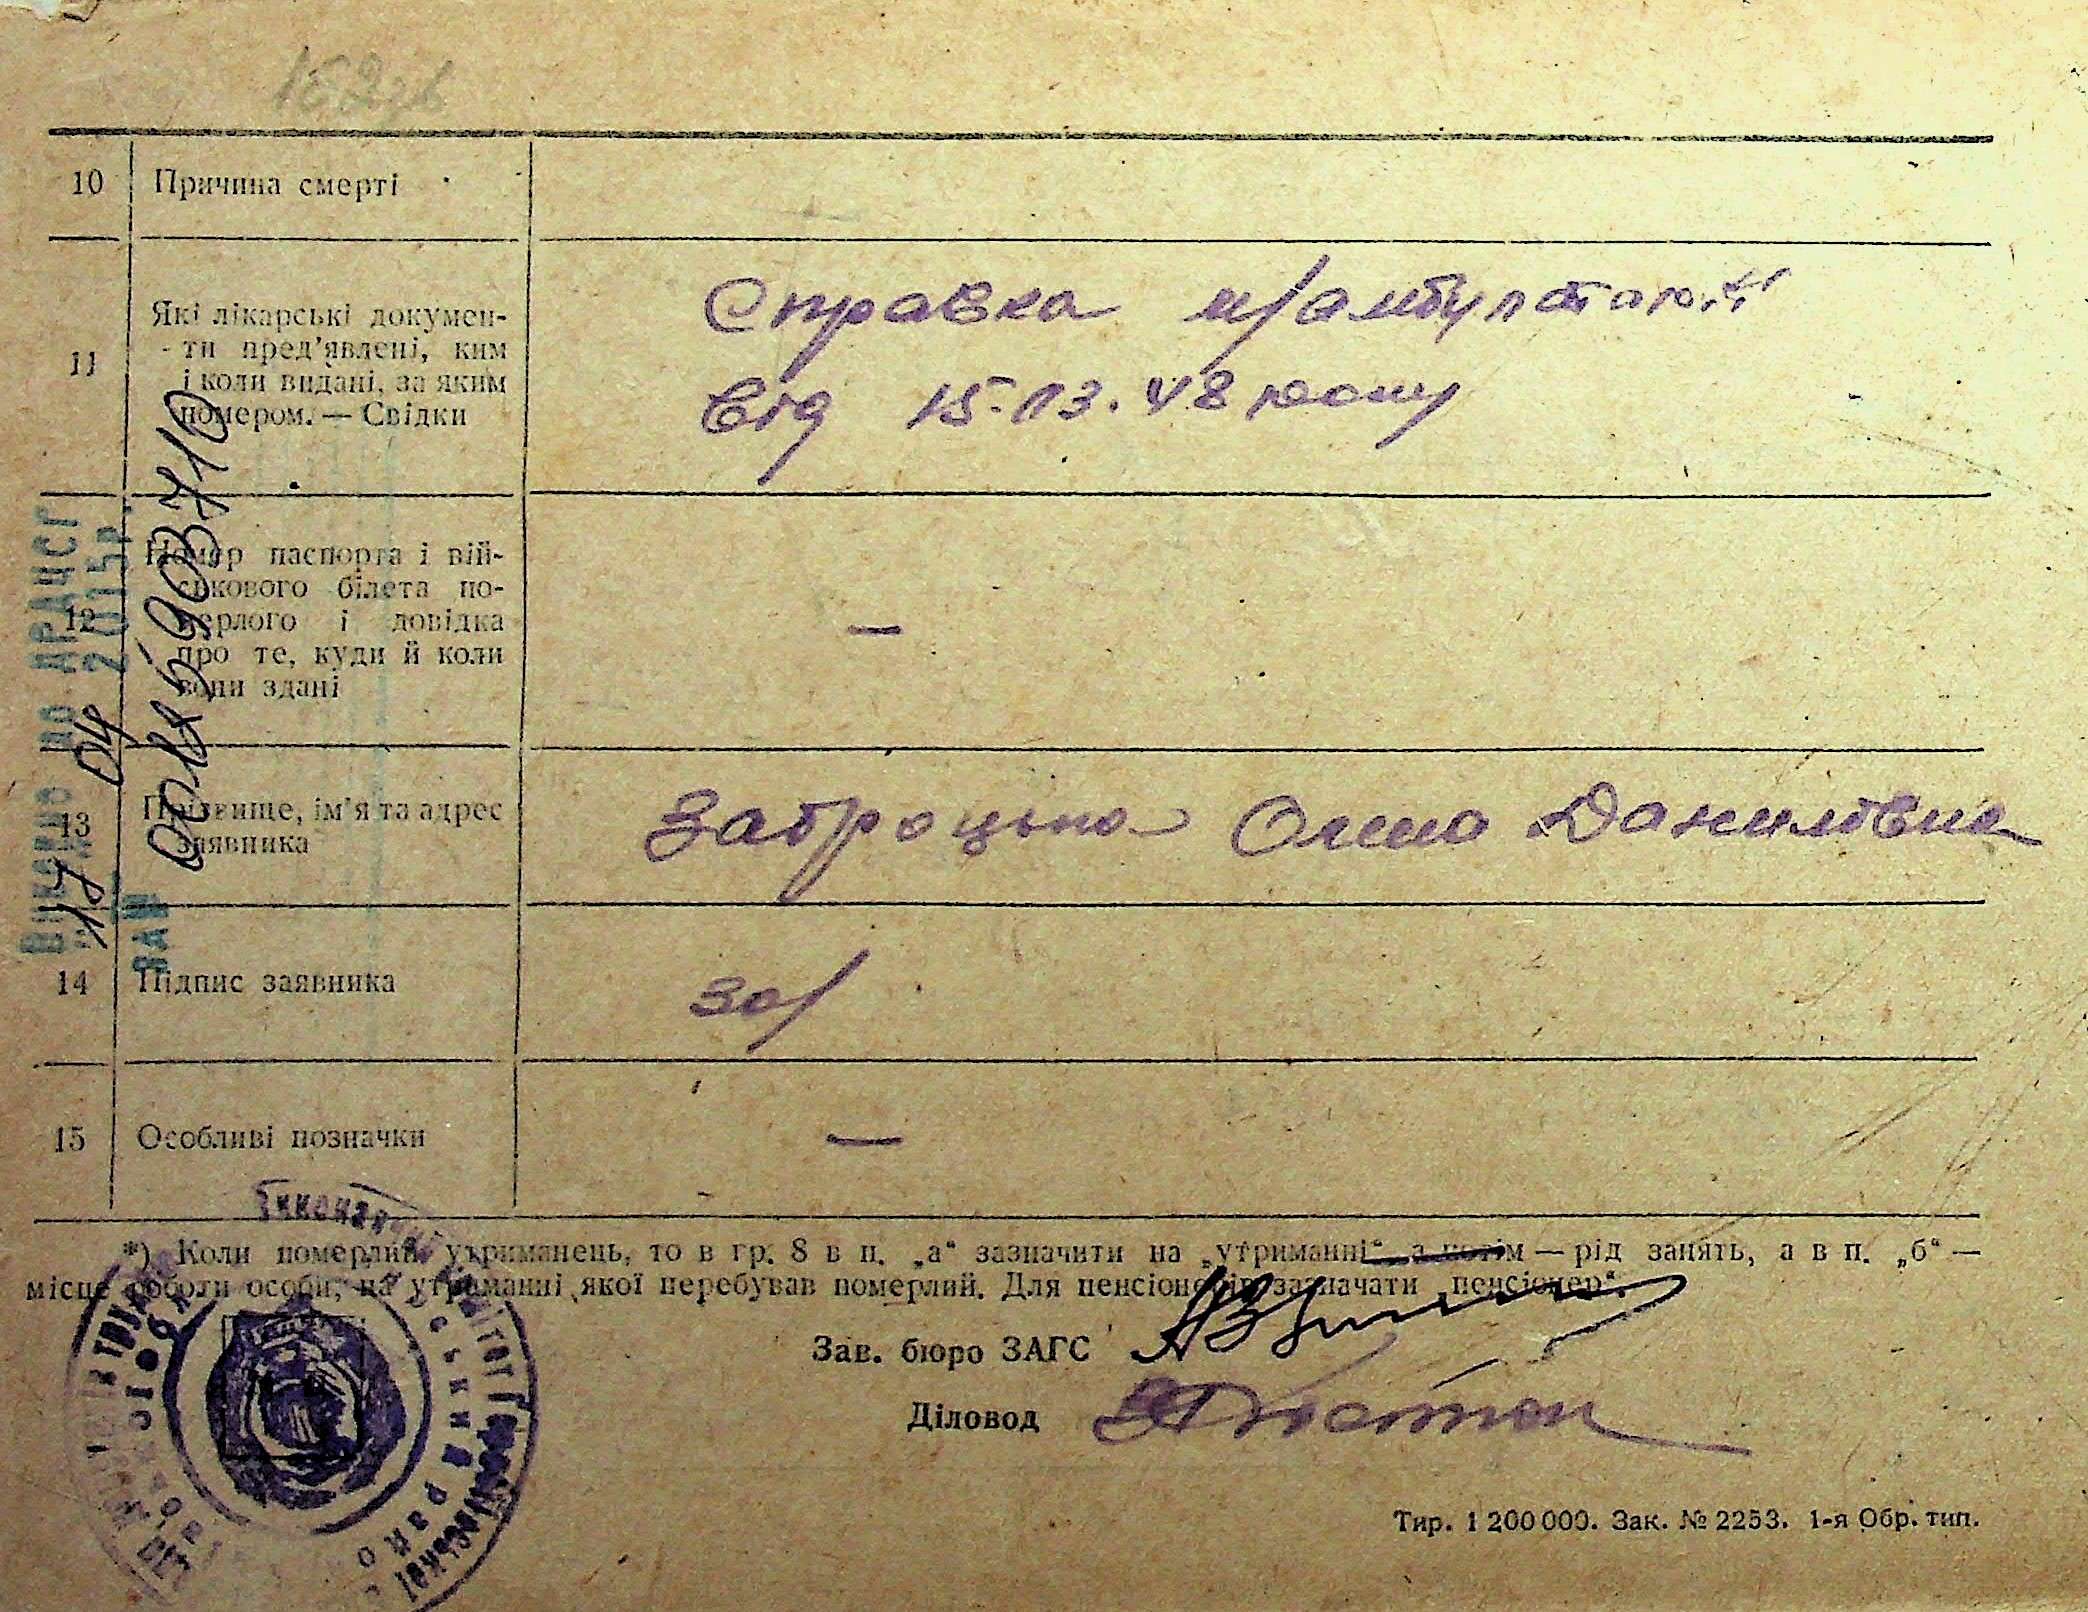 10 Причина смерті
11 Які лікарські докумен-
ти пред'явлені, ким
і коли видані, за яким
номером. — Свідки
Справка
від 15. 13. 48 року
12 Номер паспорта і вій-
ськового білета по-
мерлого і довідка
про те, куди й коли
вони здані
—
13 Прізвище, ім'я та адрес
заявника
Заброцька Олена Даниловна
14 Підпис заявника
За/
15 Особливі позначки
—
*) Коли померлий утриманець, то в гр. 8 в п. „а“ зазначити на „утриманні“, а потім — рід занять, а в п. „б“ —
місце роботи особи, на утриманні якої перебував померлий. Для пенсіонерів зазначати „пенсіонер“.
Зав. бюро ЗАГС
Діловод
Тир. 1 200 000. Зак. № 2253. 1-я Обр. тип.
Виконано по ДРАЦСГ
17 04 2015р.
00115903710